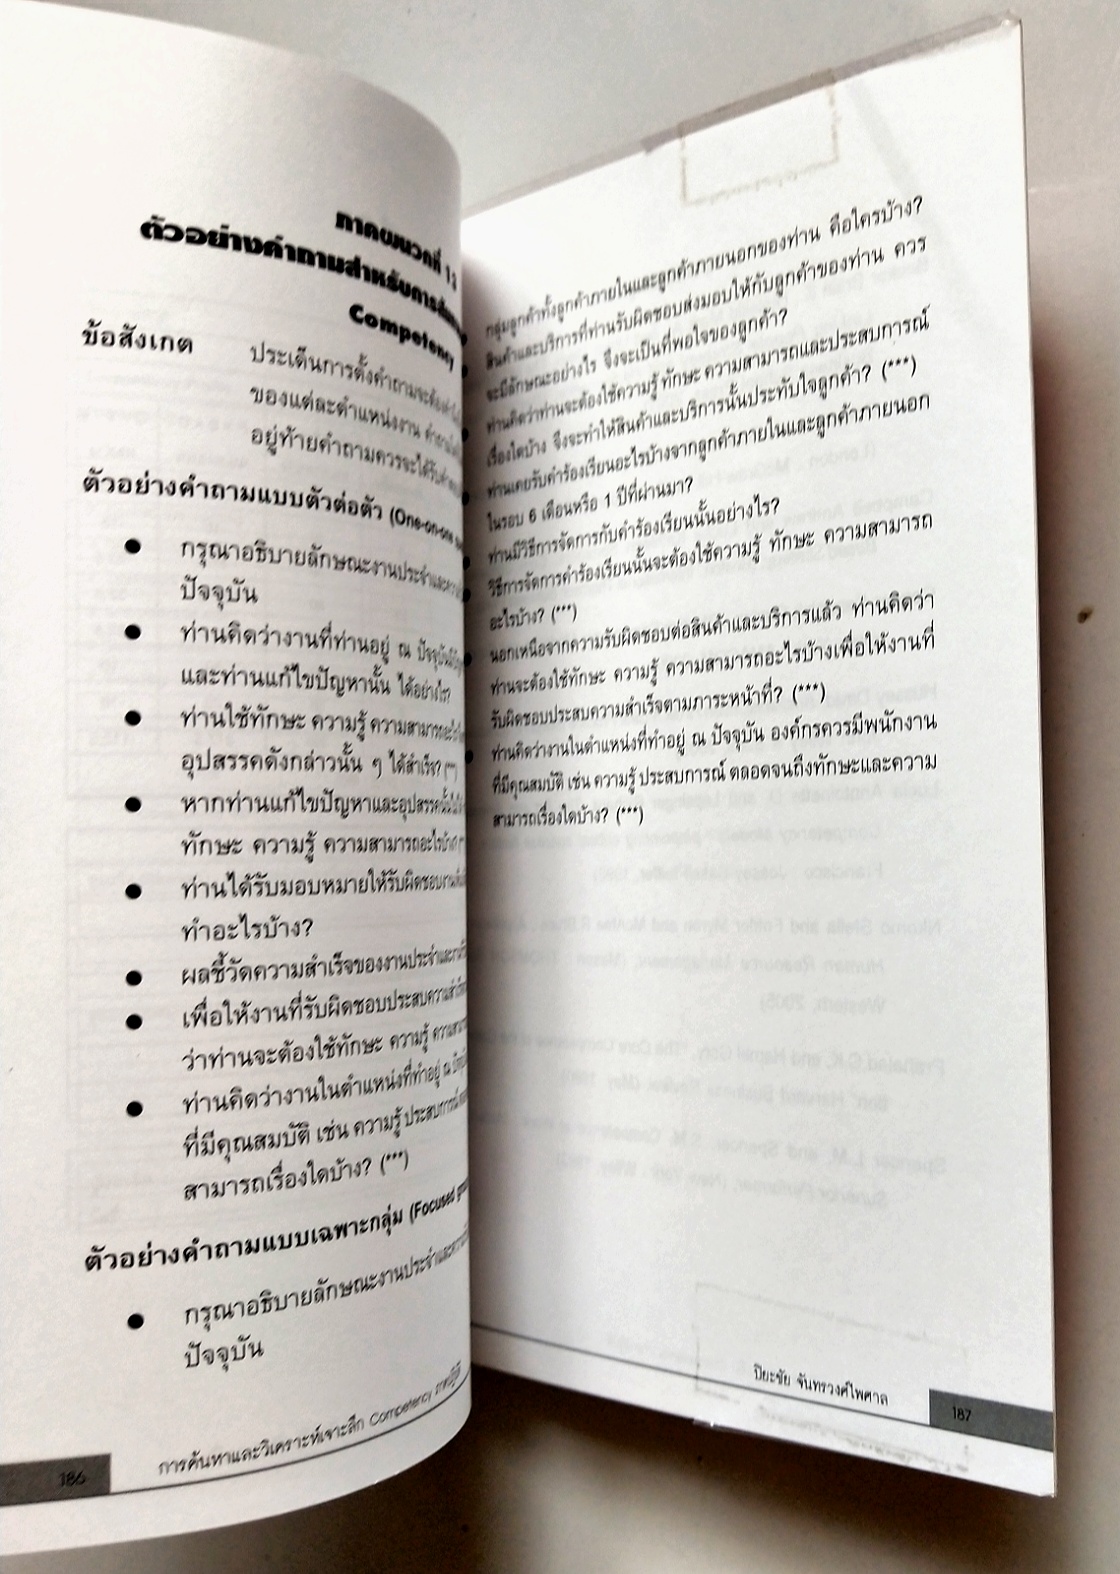 ภาคผนวกที่ 13
ตัวอย่างคำถามสำหรับการสัม
Competency
ข้อสังเกต
ประเด็นการตั้งคำถามจะต้อง
ของแต่ละตำแหน่งงาน
อยู่ท้ายคำถามควรจะได้รับ
ตัวอย่างคำถามแบบตัวต่อตัว (One-on-one
● กรุณาอธิบายลักษณะงานประจำและความ
ปัจจุบัน
● ท่านคิดว่างานที่ท่านอยู่ ณ ปัจจุบัน
และท่านแก้ไขปัญหานั้น ได้อย่างไร?
● ท่านใช้ทักษะ ความรู้ ความสามารถ
อุปสรรคดังกล่าวนั้น ๆ ได้สำเร็จ?
● หากท่านแก้ไขปัญหาและอุปสรรคนั้น
ทักษะ ความรู้ ความสามารถอะไรบ้าง?
● ท่านได้รับมอบหมายให้รับผิดชอบงาน
ทำอะไรบ้าง?
● ผลชี้วัดความสำเร็จของงานประจำและ
● เพื่อให้งานที่รับผิดชอบประสบความสำเร็จ
ว่าท่านจะต้องใช้ทักษะ ความรู้ ความสามารถ
● ท่านคิดว่างานในตำแหน่งที่ทำอยู่ ณ ปัจจุบัน
ที่มีคุณสมบัติ เช่น ความรู้ ประสบการณ์
สามารถเรื่องใดบ้าง? (***)
ตัวอย่างคำถามแบบเฉพาะกลุ่ม (Focused
● กรุณาอธิบายลักษณะงานประจำและความ
ปัจจุบัน
186 การค้นหาและวิเคราะห์เจาะลึก Competency ภาคปฏิบัติ
กลุ่มลูกค้าทั้งลูกค้าภายในและลูกค้าภายนอกของท่าน คือใครบ้าง?
สินค้าและบริการที่ท่านรับผิดชอบส่งมอบให้กับลูกค้าของท่าน ควร
จะมีลักษณะอย่างไร จึงจะเป็นที่พอใจของลูกค้า?
ท่านคิดว่าท่านจะต้องใช้ความรู้ ทักษะ ความสามารถและประสบการณ์
เรื่องใดบ้าง จึงจะทำให้สินค้าและบริการนั้นประทับใจลูกค้า? (***)
ท่านเคยรับคำร้องเรียนอะไรบ้างจากลูกค้าภายในและลูกค้าภายนอก
ในรอบ 6 เดือนหรือ 1 ปีที่ผ่านมา?
ท่านมีวิธีการจัดการกับคำร้องเรียนนั้นอย่างไร?
วิธีการจัดการคำร้องเรียนนั้นจะต้องใช้ความรู้ ทักษะ ความสามารถ
อะไรบ้าง? (***)
นอกเหนือจากความรับผิดชอบต่อสินค้าและบริการแล้ว ท่านคิดว่า
ท่านจะต้องใช้ทักษะ ความรู้ ความสามารถอะไรบ้างเพื่อให้งานที่
รับผิดชอบประสบความสำเร็จตามภาระหน้าที่? (***)
ท่านคิดว่างานในตำแหน่งที่ทำอยู่ ณ ปัจจุบัน องค์กรควรมีพนักงาน
ที่มีคุณสมบัติ เช่น ความรู้ ประสบการณ์ ตลอดจนถึงทักษะและความ
สามารถเรื่องใดบ้าง? (***)
ปิยะชัย จันทรวงศ์ไพศาล 187